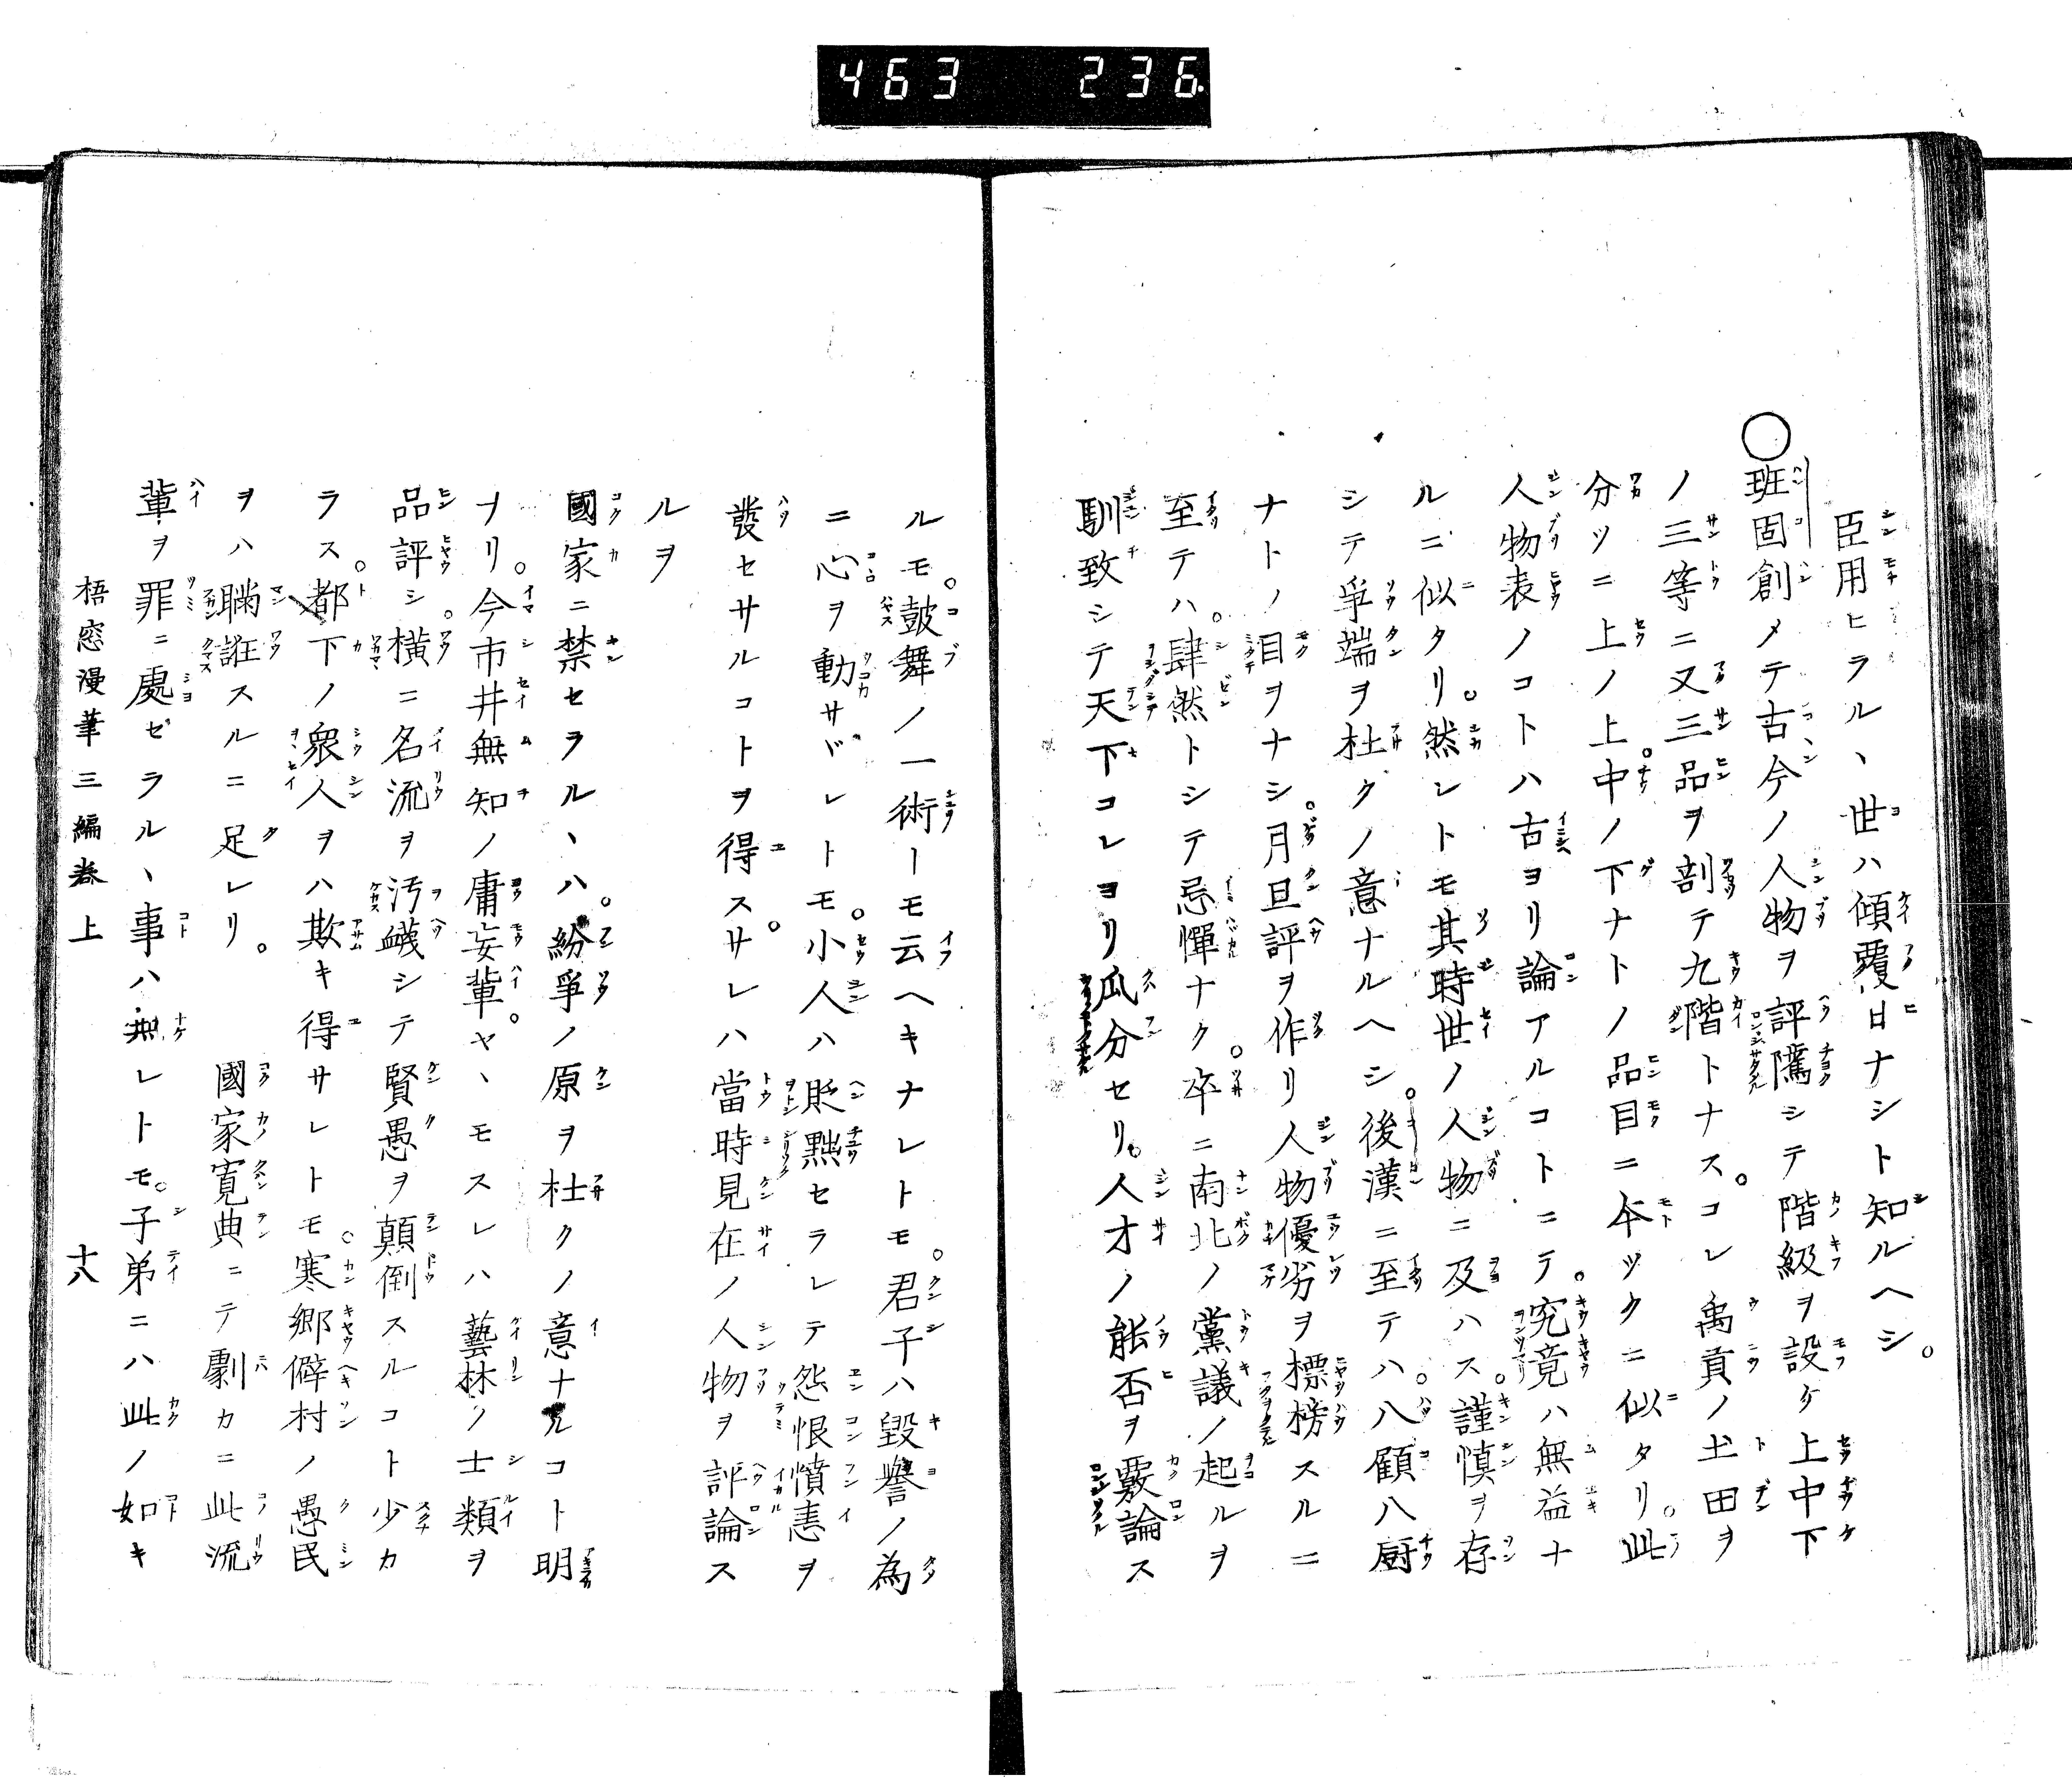 463 236
臣用ヒラル、世ハ傾覆日ナシト知ルヘシ。
○班固創メテ古今ノ人物ヲ評隲シテ階級ヲ設ケ上中下
ノ三等ニ又三品ヲ剖テ九階トナス。コレ禹貢ノ土田ヲ
分ツニ上ノ上中。ノ下ナトノ品目ニ本ツクニ似タリ。此
人物表ノコトハ古ヨリ論アルコトニテ。究竟ハ無益ナ
ルニ似タリ。然レトモ其時世ノ人物ニ及ハス。謹慎ヲ存
シテ爭端ヲ杜クノ意ナルヘシ。後漢ニ至テハ。八顧八厨
ナトノ目ヲナシ。月旦評ヲ作リ人物優劣ヲ標榜スルニ
至テハ。肆然トシテ忌憚ナク。卒ニ南北ノ黨議ノ起ルヲ
馴致シテ天下コレヨリ瓜分セリ。人才ノ能否ヲ覈論ス
ルモ。鼓舞ノ一術ーモ云ヘキナレトモ。君子ハ毀譽ノ為
ニ心ヲ動サヾレトモ。小人ハ貶黜セラレテ怨恨憤恚ヲ
發セサルコトヲ得ス。サレハ當時見在ノ人物ヲ評論ス
ルヲ
國家ニ禁セラル、ハ。紛爭ノ原ヲ杜クノ意ナルコト明
ナリ。今市井無知ノ庸妄輩。ヤ、モスレハ藝林ノ士類ヲ
品評シ。橫ニ名流ヲ汚衊シテ賢愚ヲ顛倒スルコト少カ
ラス。都下ノ衆人ヲハ欺キ得サレトモ。寒鄉僻村ノ愚民
ヲハ瞞誑スルニ足レリ。國家寛典ニテ劇カニ此流
輩ヲ罪ニ處ゼラル、事ハ無レトモ。子弟ニハ此ノ如キ
梧窓漫筆三編巻上 十八